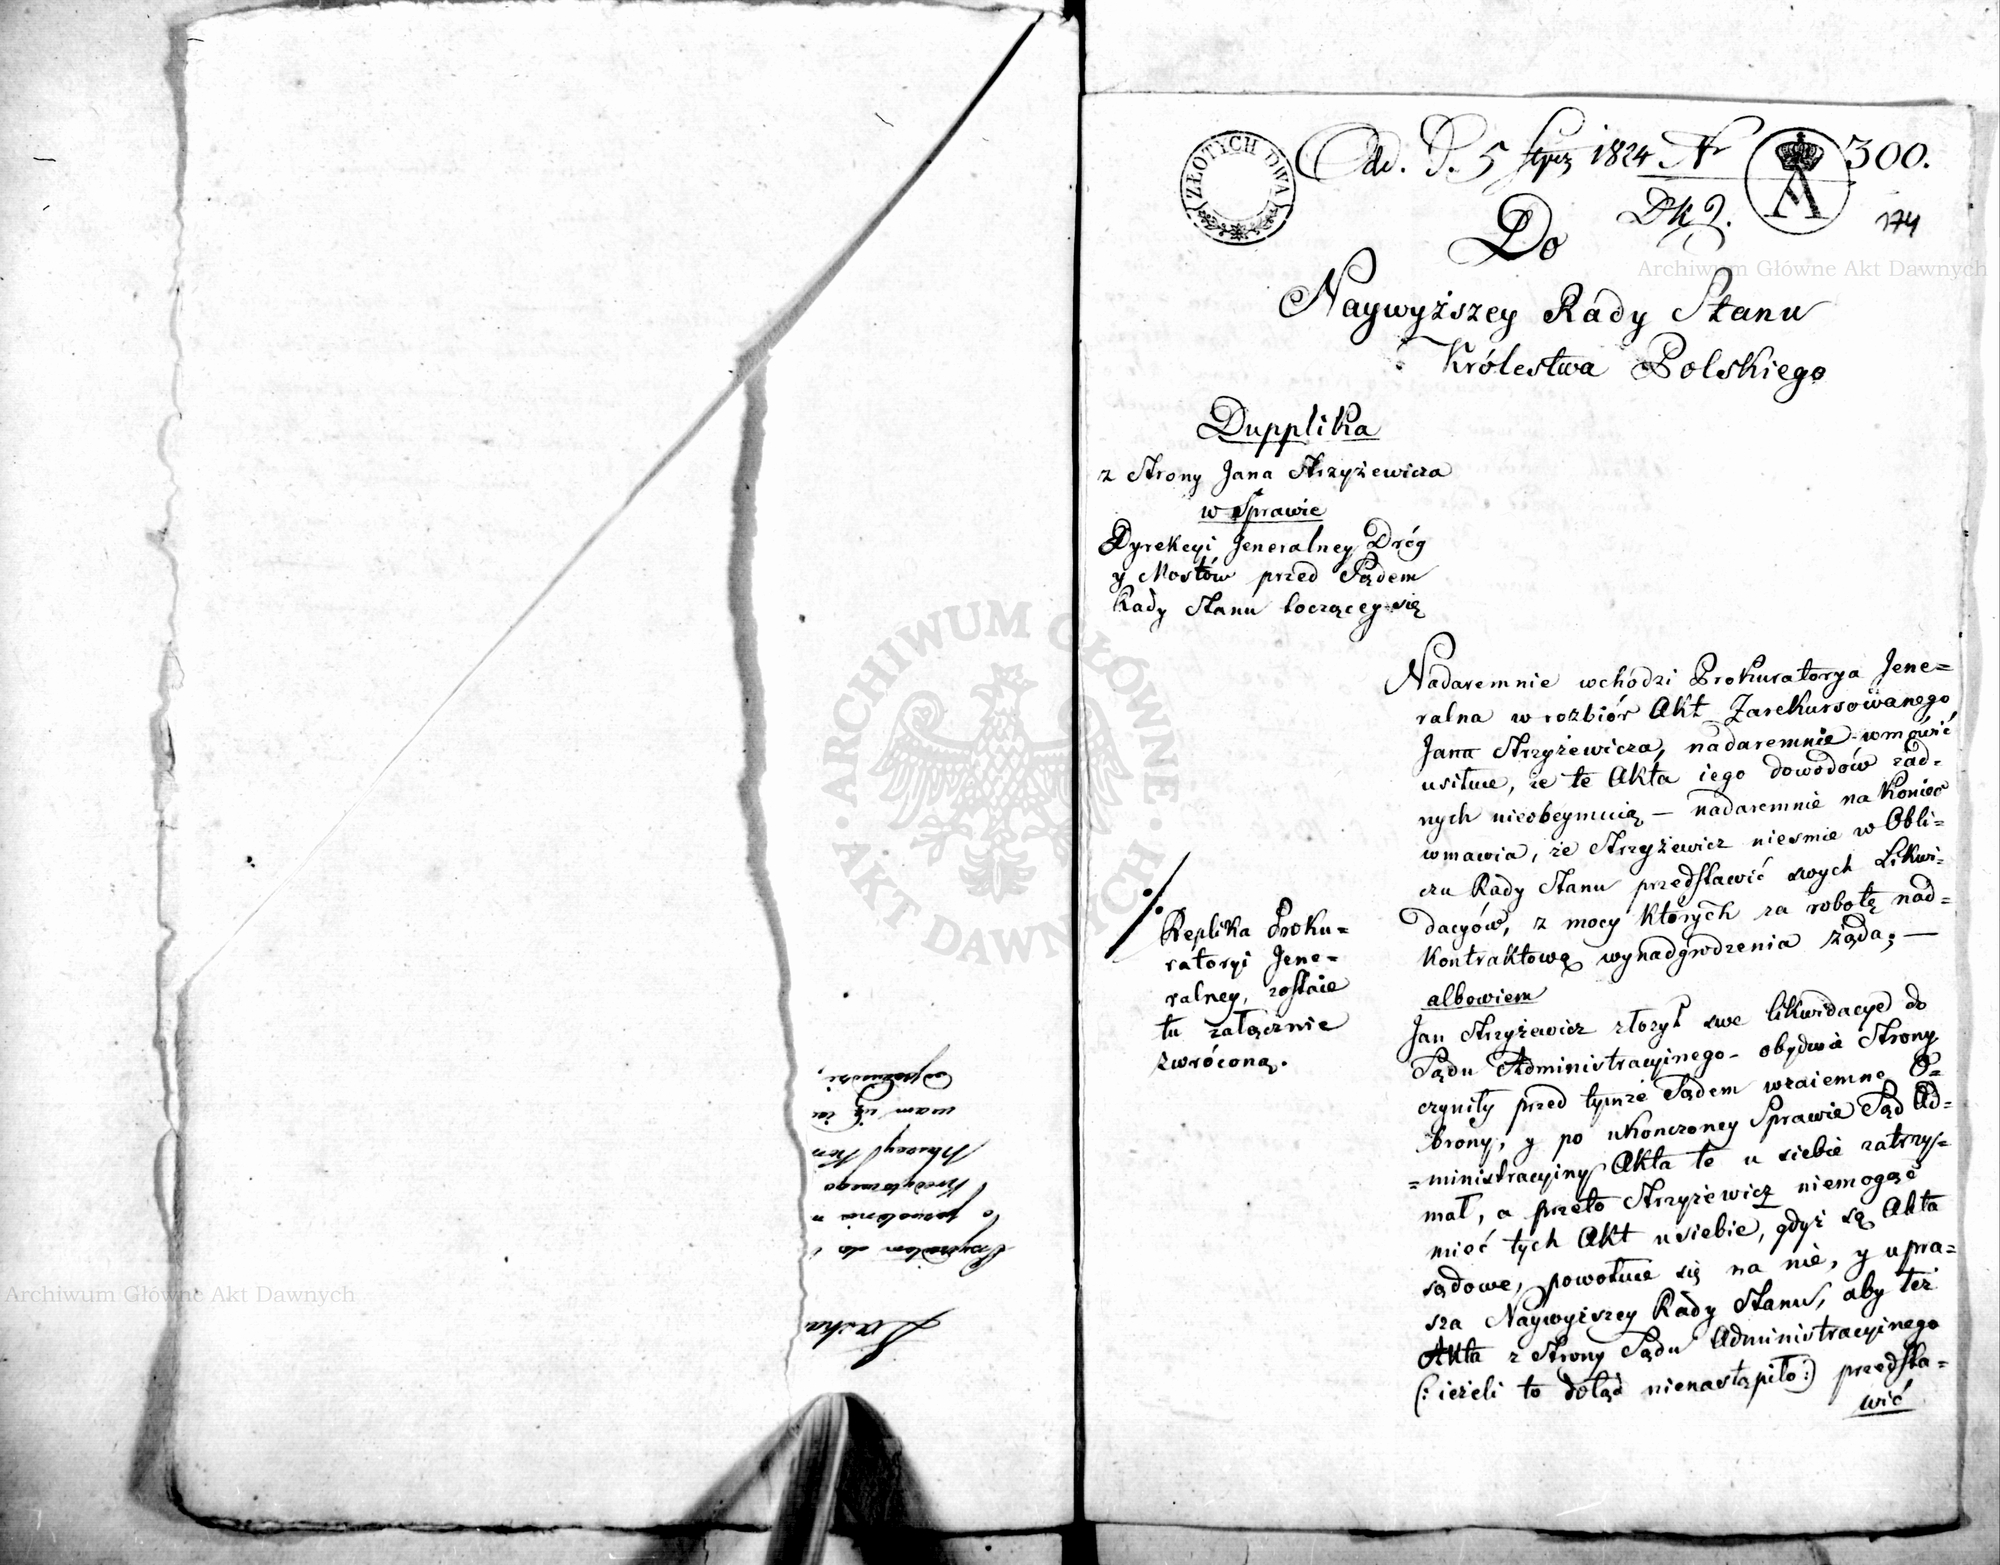 ZŁOTYCH DWA
Od. D. 5 Stycz 1824 Nr 300.
174
Do
Naywyższey Rady Stanu
Królestwa Polskiego
Dupplika
z Strony Jana Strzyżewicza
w Sprawie
Dyrekcyi Jeneralney Dróg
y Mostów przed Sądem
Rady Stanu toczącey się
Nadaremnie wchodzi Prokuratorya Jene=
ralna w rozbiór Akt Zarekursowanego
Jana Strzyżewicza, nadaremnie wmówić
usiłuie, że te Akta iego dowodów żad-
nych nieobeymuią — nadaremnie na koniec
wmawia, że Strzyżewicz nieśmie w Obli=
czu Rady Stanu przedstawić swych Likwi-
dacyów, z mocy których za robotę nad=
kontraktową wynadgrodzenia żąda; —
albowiem
Jan Strzyżewicz złożył swe likwidacye do
Sądu Administracyinego - obydwie Strony
czyniły przed tymże Sądem wzaiemne O=
brony, y po ukonczoney Sprawie Sąd Ad=
=ministracyiny Akta te u siebie zatrzy=
mał, a przeto Strzyżewicz niemogąc
mieć tych Akt u siebie, gdyż są Akta
sądowe, powołuie się na nie, y upra=
sza Naywyższey Rady Stanu, aby też
Akta z Strony Sądu Administracyinego
(: ieżeli to dotąd nienastąpiło :) przedsta=
wić
Replika Proku=
ratoryi Jene=
ralney, zostaie
tu załącznie
zwróconą.
ARCHIWUM GŁÓWNE AKT DAWNYCH
Archiwum Główne Akt Dawnych
Archiwum Główne Akt Dawnych